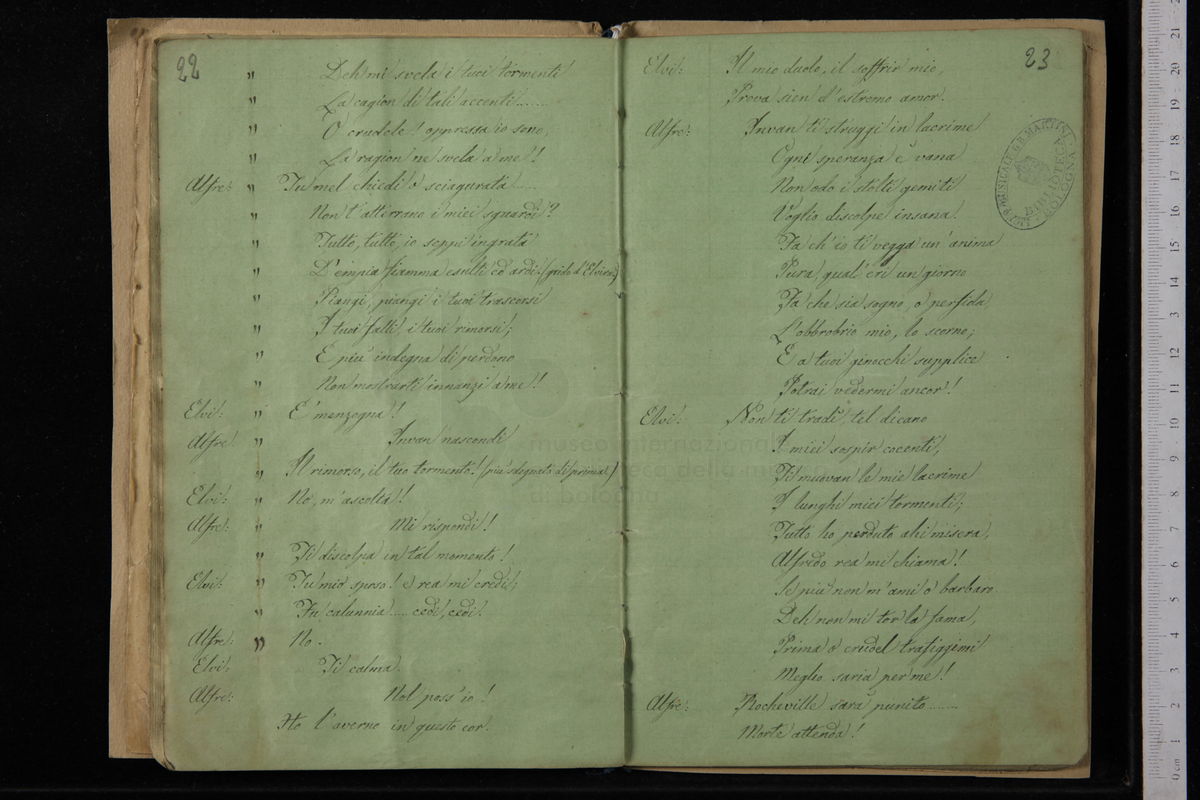 22
" Deh mi svela i tuoi tormenti
" La cagion di tali accenti......
" O crudele! oppressa io sono,
" La ragion ne svela a me!!
Alfre: " Tu mel chiedi o sciagurata......
" Non t'atterrano i miei sguardi?
" Tutto, tutto, io seppi ingrata
" D'empia fiamma esulti ed ardi! (grido d'Elvira)
" Piangi, piangi i tuoi trascorsi
" I tuoi falli, i tuoi rimorsi;
" E più indegna di perdono
" Non mostrarti innanzi a me!!
Elvi: " E' menzogna!
Alfre: " Invan nascondi
" Il rimorso, il tuo tormento! (più sdegnato di prima)
Elvi: " No, m'ascolta!!
Alfre: " Mi rispondi!
" Ti discolpa in tal momento!
Elvi: " Tu mio sposo! e rea mi credi;
" Fu calunnia..... cedi, cedi.
Alfre: " No.
Elvi: Ti calma.
Alfre: Nol poss'io!
Ho l'averno in questo cor.
23
Elvi: Il mio duolo, il soffrir mio,
Prova sien d'estremo amor.
Alfre: Invan ti struggi in lacrime
Ogni speranza è vana
Non odo i stolti gemiti
Voglio discolpe insana.
Fa ch'io ti vegga un'anima
Pura qual'eri un giorno
Fa che sia sogno, o perfida,
L'obbrobrio mio, lo scorno;
E a tuoi ginocchi supplice
Potrai vedermi ancor!
Elvi: Non ti tradi, tel dicano
I miei sospir cocenti,
Ti muovan le mie lacrime
I lunghi miei tormenti;
Tutto ho perduto ahi misera,
Alfredo rea mi chiama!
Se più non m'ami o barbaro
Deh non mi tor la fama,
Prima o crudel trafiggimi
Meglio saria per me!
Alfre: Rocheville sarà punito......
Morte attenda!
LICEO MUSICALE G.B. MARTINI
BIBLIOTECA
BOLOGNA
museo internazionale
e biblioteca della musica
di bologna